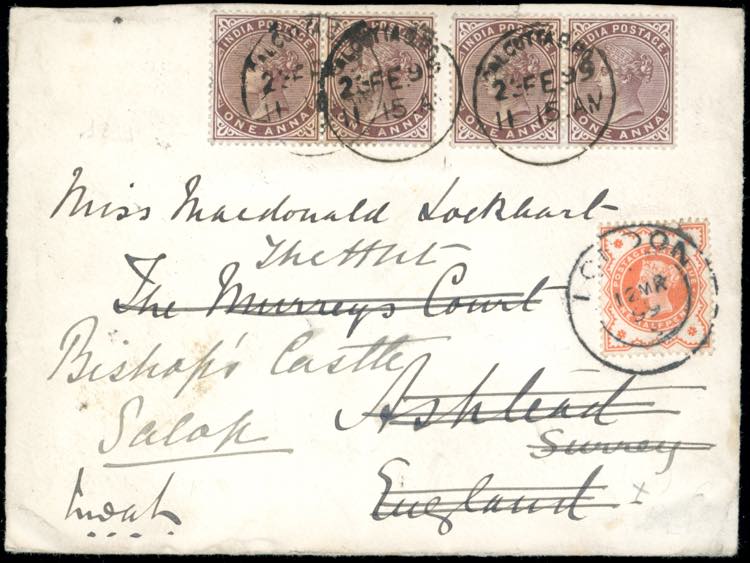 INDIA POSTAGE INDIA POSTAGE INDIA POSTAGE INDIA POSTAGE
CALCUTTA G.P.O.
FE 99
11 15 AM
CALCUTTA G.P.O.
FE 99
11 15 AM
ONE ANNA ONE ANNA ONE ANNA ONE ANNA
Miss Macdonald Lockhart
The Hut
The Murreys Court
LONDON
12 MR
99
POSTAGE
HALFPENNY
Bishop's Castle
Ashtead
Salop
Surrey
England